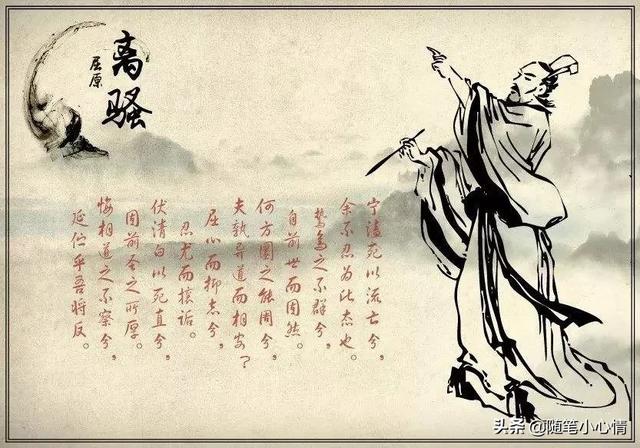 离骚
屈原
宁溘死以流亡兮，
余不忍为此态也。
鸷鸟之不群兮，
自前世而固然。
何方圜之能周兮，
夫孰异道而相安？
屈心而抑志兮，
忍尤而攘诟。
伏清白以死直兮，
固前圣之所厚。
悔相道之不察兮，
延伫乎吾将反。
头条@随笔小心情